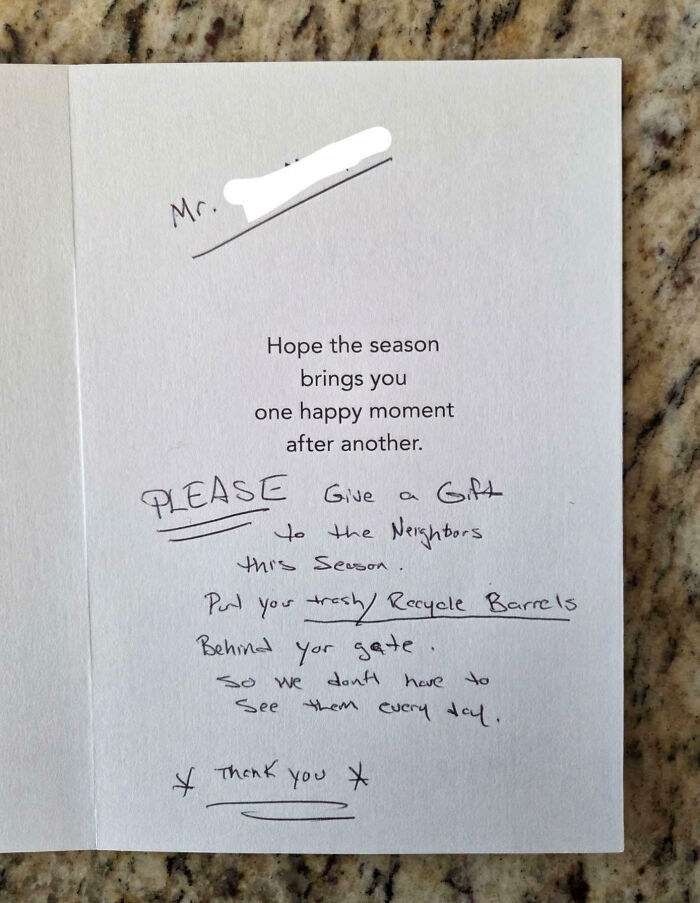 Mr.
Hope the season
brings you
one happy moment
after another.
PLEASE Give a Gift
to the Neighbors
this Season.
Put your trash/Recycle Barrels
Behind yor gate.
So we dont have to
See them every day.
* Thank you *